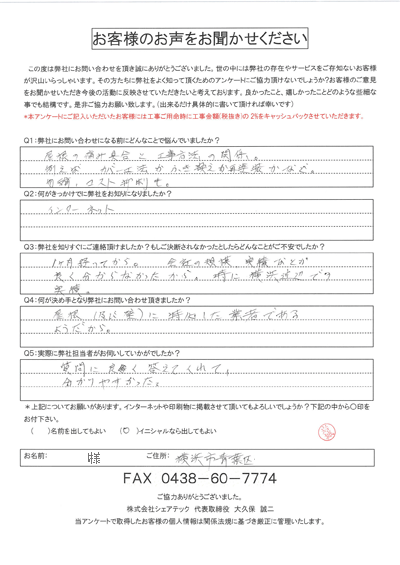 お客様のお声をお聞かせください
この度は弊社にお問い合わせを頂き誠にありがとうございました。世の中には弊社の存在やサービスをご存知ないお客様
が沢山いらっしゃいます。その方たちに弊社をよく知って頂くためのアンケートにご協力頂けないでしょうか?お客様のご意見
をお聞かせいただき今後の活動に反映させていただきたいと考えております。良かったこと、嬉しかったことどのような些細な
事でも結構です。是非ご協力お願い致します。(出来るだけ具体的に書いて頂ければ幸いです)
*本アンケートにご記入いただいたお客様には工事ご用命時に工事金額(税抜き)の2%をキャッシュバックさせていただきます。
Q1:弊社にお問い合わせになる前にどんなことで悩んでいましたか?
屋根の痛み具合と工事方法の関係。
例えば カバー工法か ふき替えか 再塗装かなど。
勿論、コスト抑制も。
Q2:何がきっかけでに弊社をお知りになりましたか?
インターネット
Q3:弊社を知りすぐにご連絡頂けましたか?もしご決断されなかったとしたらどんなことがご不安でしたか?
1ヶ月経ってから。 会社の規模、実績などが
良く分からなかったから。特に横浜周辺での
実績。
Q4:何が決め手となり弊社にお問い合わせ頂きましたか?
屋根(ほぼ葉)に特化した業者である
ようだから。
Q5:実際に弊社担当者がお伺いしていかがでしたか?
質問に良く答えてくれて、
分かりやすかった。
*上記についてお願いがあります。インターネットや印刷物に掲載させて頂いてもよろしいでしょうか?下記の中から○印を
お付下さい。
( )名前を出してもよい (○)イニシャルなら出してもよい
お名前: 様 ご住所: 横浜市青葉区
FAX 0438-60-7774
ご協力ありがとうございました。
株式会社シェアテック 代表取締役 大久保 誠二
当アンケートで取得したお客様の個人情報は関係法規に基づき厳正に管理いたします。